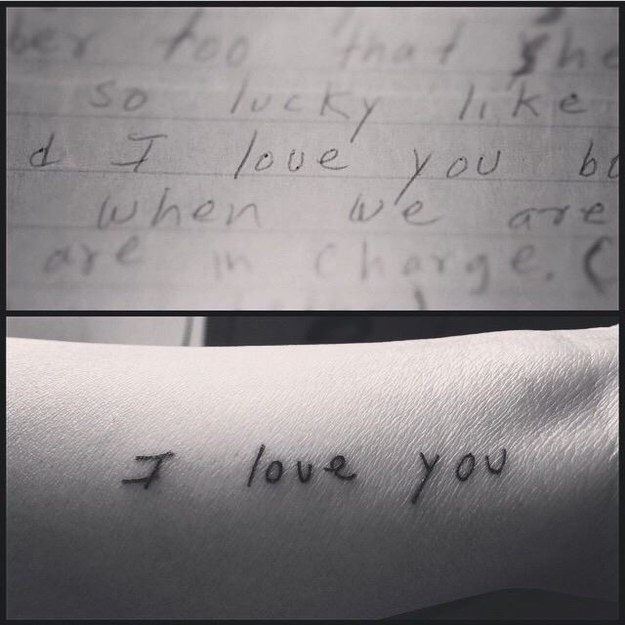 ber too that she
so lucky like
d I love you
when we are
are in charge. (
I love you